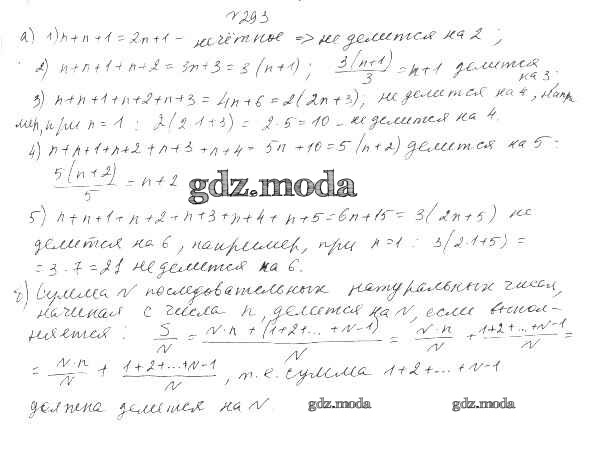 №293
а) 1) n+n+1=2n+1 - нечётное => не делится на 2;
2) n+n+1+n+2=3n+3=3(n+1); 3(n+1)/3=n+1 делится на 3.
3) n+n+1+n+2+n+3=4n+6=2(2n+3), не делится на 4, напри
мер, при n=1: 2(2·1+3)=2·5=10 - не делится на 4.
4) n+n+1+n+2+n+3+n+4=5n+10=5(n+2) делится на 5:
5(n+2)/5=n+2
gdz.moda
5) n+n+1+n+2+n+3+n+4+n+5=6n+15=3(2n+5) не
делится на 6, например, при n=1: 3(2·1+5)=
=3·7=21 не делится на 6.
б) Сумма N последовательных натуральных чисел,
начиная с числа n, делится на N, если выпол-
няется: S/N = N·n+(1+2+...+N-1)/N = N·n/N + 1+2+...+N-1/N =
= N·n/N + 1+2+...+N-1/N, т.е. сумма 1+2+...+N-1
должна делится на N.
gdz.moda gdz.moda